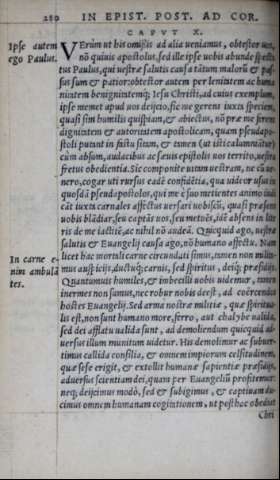 280 IN EPIST. POST. AD COR.
CAPVT X.
Ipse autem
ego Paulus.
VErùm ut his omißis ad alia ueniamus, obtestor uos,
nō quiuis apostolus, sed ille ipse uobis abunde spectatus
Paulus, qui uestræ salutis causa tātum malorū & passus
sum & patior: obtestor autem per lenitatem ac humanitatem
benignitatemq; Iesu Christi, ad cuius exemplum,
ipse memet apud uos deijcio, sic me gerens iuxta speciem,
quasi sim humilis quispiam, & abiectus, nō præ me ferens
dignitatem & autoritatem apostolicam, quam pseudapostoli
putant in fastu sitam, & tamen (ut isti calumniātur)
cùm absum, audacibus ac sæuis epistolis uos territo, uestra
fretus obedientia. Sic componite uitam uestram, ne cū uenero,
cogar uti rursus eadē confidētia, qua uideor usus in
quosdā pseudapostolos, qui me
cāt iuxta carnales affectus uersari uobiscū, quasi præsens
uobis blādiar, seu captās uos, seu metuēs, idē absens in literis
ac nihil nō audeā. Quicquid ago, uestræ
salutis & Euangelij causa ago, nō humano affectu. Nam
In carne enim
ambulātes.
licet hac mortali carne circundati simus, tamen non militamus
auspicijs, ductuq; carnis, sed spiritus, deiq; præsidijs.
Quantumuis humiles, & imbecilli uobis uidemur, tamen
inermes non sumus, nec robur nobis deest, ad coërcendos
hostes Euangelij. Sed arma nostræ militiæ, quæ spiritualis
est, non sunt humano more, ferro, aut chalybe ualida,
sed dei afflatu ualida sunt, ad demoliendum quicquid aduersus
illum munitum uidetur. His demolimur ac subuertimus
callida consilia, & omnem impiorum celsitudinem,
quæ sese erigit, & extollit humanæ sapientiæ præsidijs,
aduersus scientiam dei, quam per Euangeliū profitemur:
neq; deijcimus modò, sed & subigimus, & captiuam ducimus
omnem humanam cogitationem, ut posthac obediat
Chri